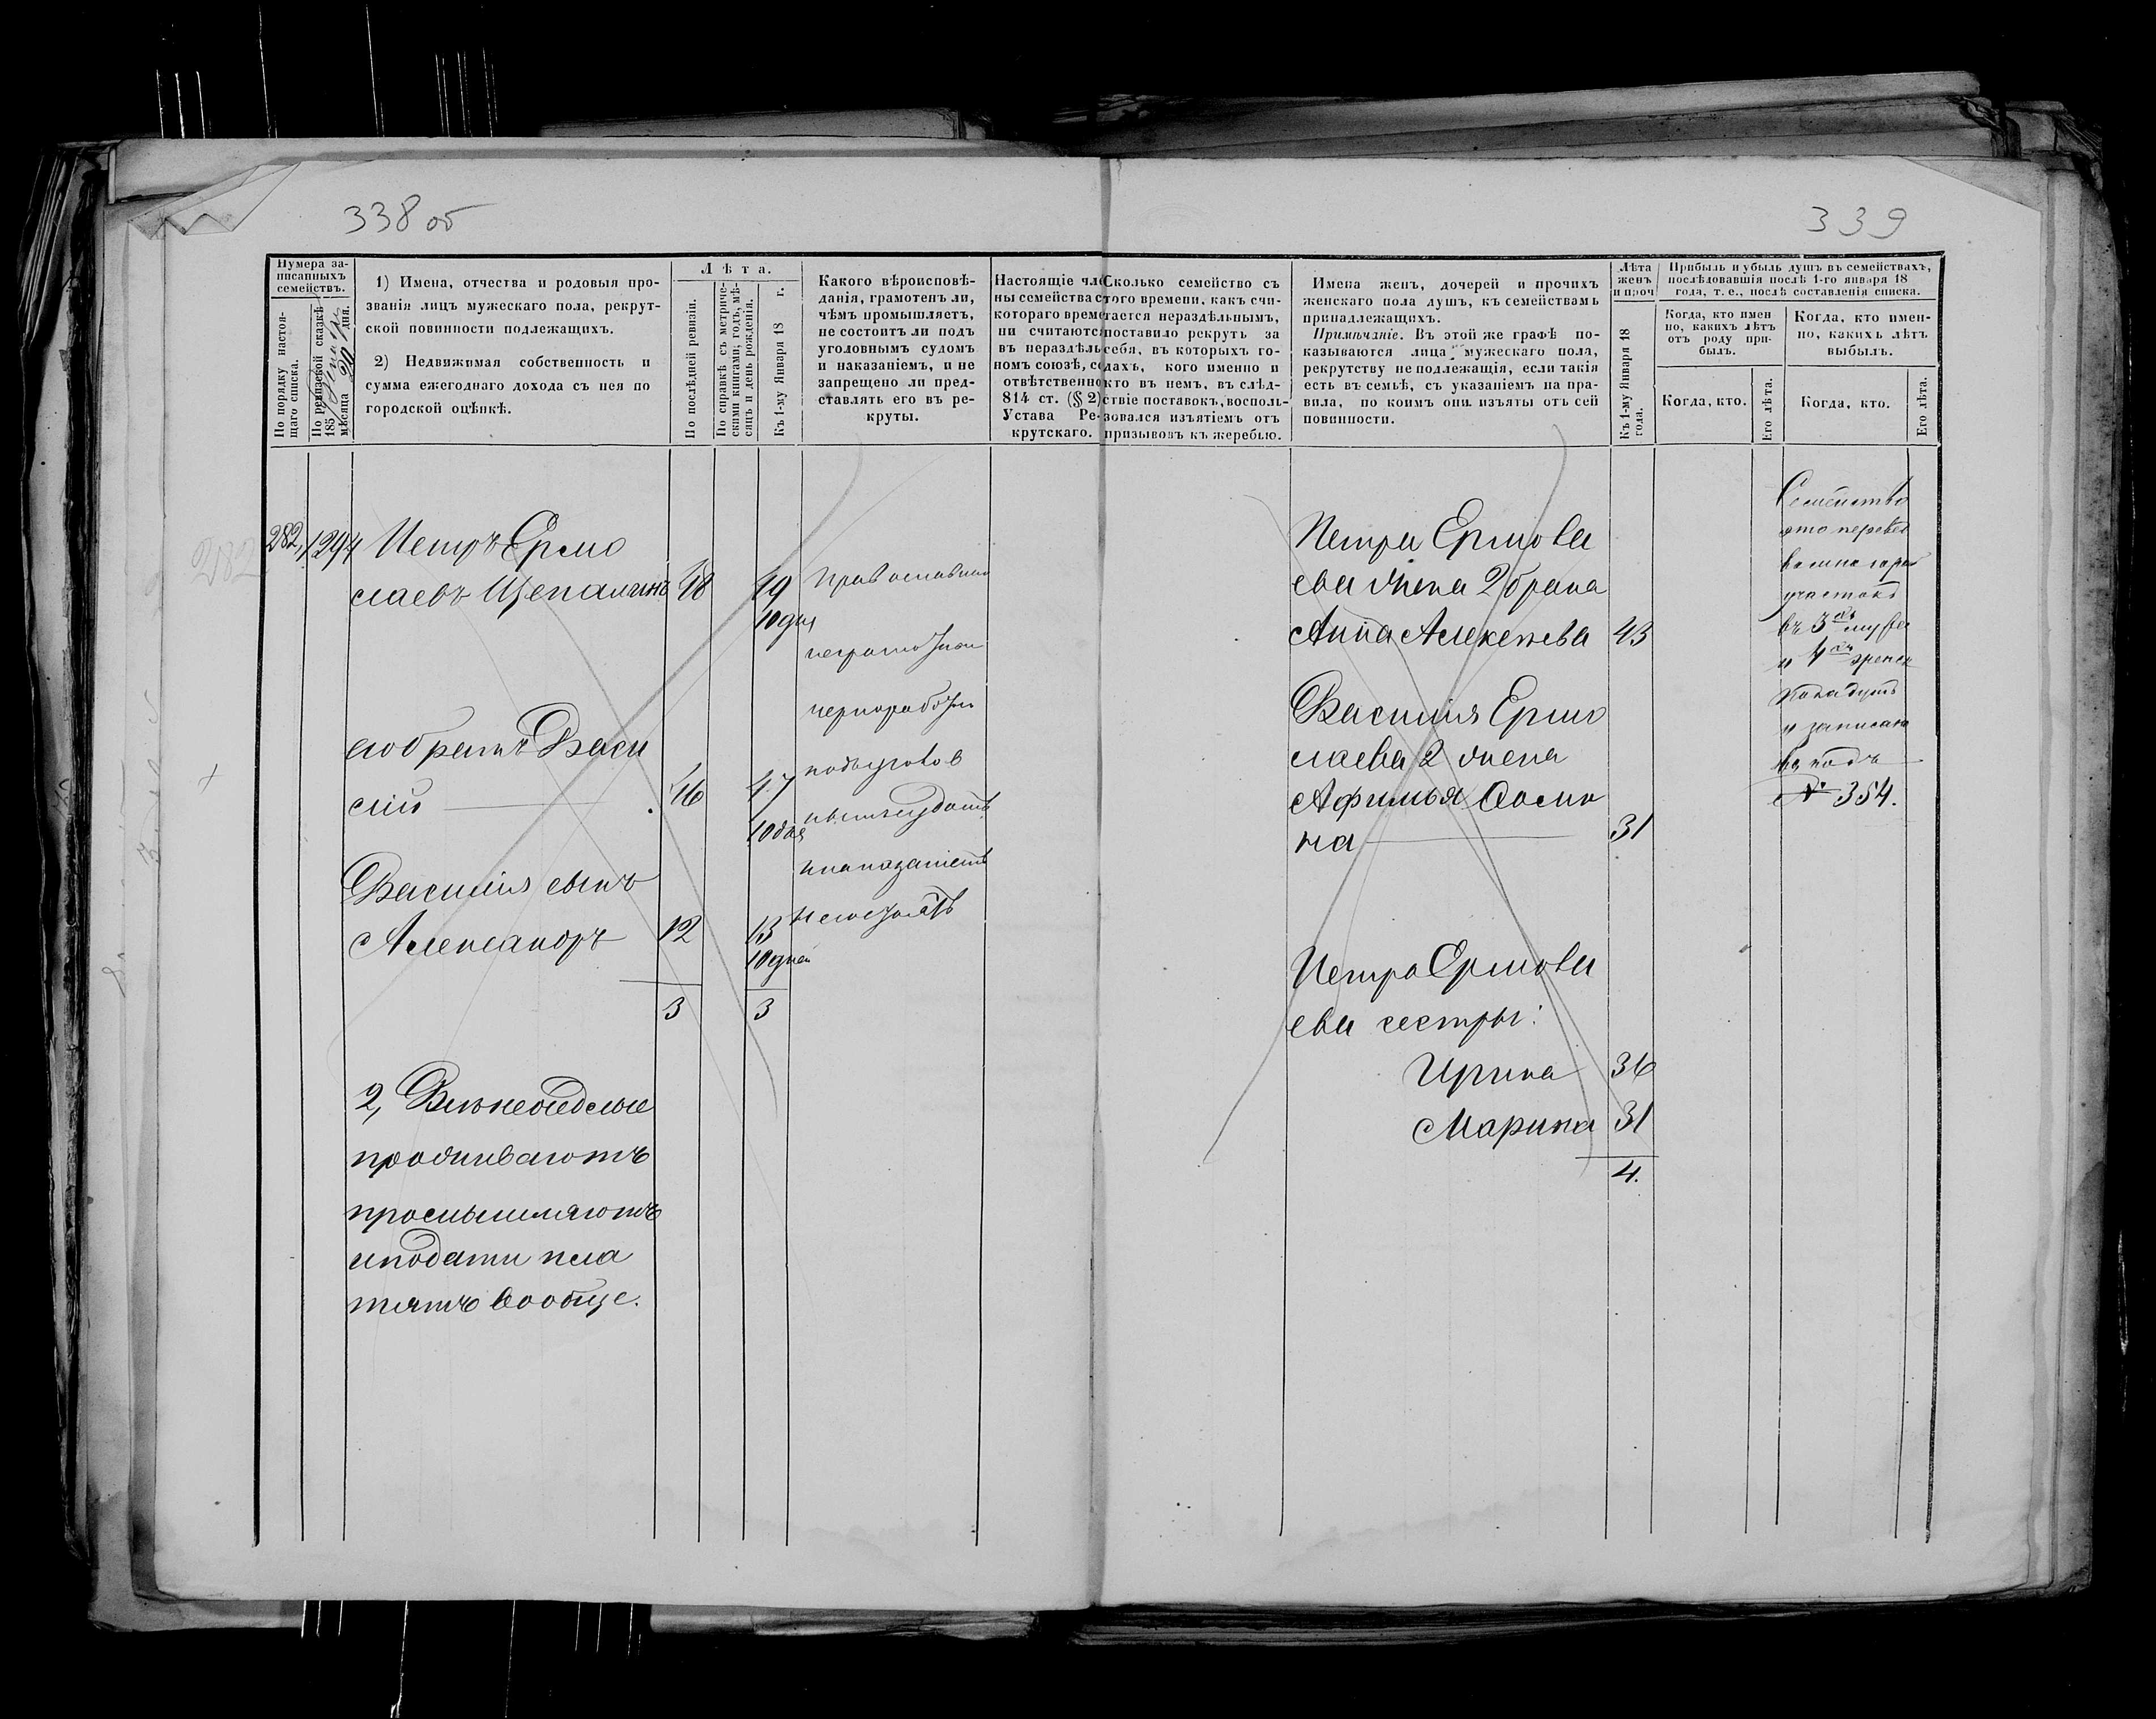 338 об
339
Нумера за-
писанныхъ
семействъ.
По порядку настоя-
щаго списка.
По ревизской сказкѣ
185
мѣсяца дня.
1) Имена, отчества и родовыя про-
званія лицъ мужескаго пола, рекрут-
ской повинности подлежащихъ.
2) Недвижимая собственность и
сумма ежегоднаго дохода съ нея по
городской оцѣнкѣ.
Лѣта.
По послѣдней ревизіи.
По справкѣ съ метриче-
скими книгами; годъ, мѣ-
сяцъ и день рожденія.
Къ 1-му Января 18 г.
Какого вѣроисповѣ-
данія, грамотенъ ли,
чѣмъ промышляетъ,
не состоитъ ли подъ
уголовнымъ судомъ
и наказаніемъ, и не
запрещено ли пред-
ставлять его въ ре-
круты.
Настоящіе чле
ны семейства с
котораго врем
ни считаются
въ нераздѣль
номъ союзѣ, с
отвѣтственно
814 ст. (§ 2)
Устава Ре-
крутскаго.
Сколько семейство съ
того времени, какъ счи-
тается нераздѣльнымъ,
поставило рекрутъ за
себя, въ которыхъ го-
дахъ, кого именно и
кто въ немъ, въ слѣд-
ствіе поставокъ, восполь-
зовался изъятіемъ отъ
призывовъ къ жеребью.
Имена женъ, дочерей и прочихъ
женскаго пола душъ, къ семействамъ
принадлежащихъ.
Примѣчаніе. Въ этой же графѣ по-
казываются лица мужескаго пола,
рекрутству не подлежащія, если такія
есть въ семьѣ, съ указаніемъ на пра-
вила, по коимъ они изъяты отъ сей
повинности.
Лѣта
женъ
и проч
Къ 1-му Января 18
года.
Прибыль и убыль душъ въ семействахъ,
послѣдовавшія послѣ 1-го января 18
года, т. е., послѣ составленія списка.
Когда, кто имен
но, какихъ лѣтъ
отъ роду при-
былъ.
Когда, кто.
Его лѣта.
Когда, кто имен-
но, какихъ лѣтъ
выбылъ.
Когда, кто.
Его лѣта.
282. 1294 Петръ Ермо
лаевъ Щепалинъ 48 49
10 дня
его братъ Васи
лій 46 47
10 дня
Василія сынъ
Александръ 12 13
10 дней
3 3
2,
проживаютъ
промышляютъ
и подати пла
тятъ вообще.
Православнаго
неграмотны
чернорабочіе
подъ уголов
нымъ судомъ
и наказаніемъ
не состоятъ
Петра Ермола
ева жена 2 брака
Анна Алексѣева 43
Василія Ермо
лаева 2 жена
Афимья Осипо
на 31
Петра Ермола
ева сестры:
Ирина 36
Марина 31
4.
Семейство
это
участокъ
въ 3
и 4
и записано
подъ
№ 354.